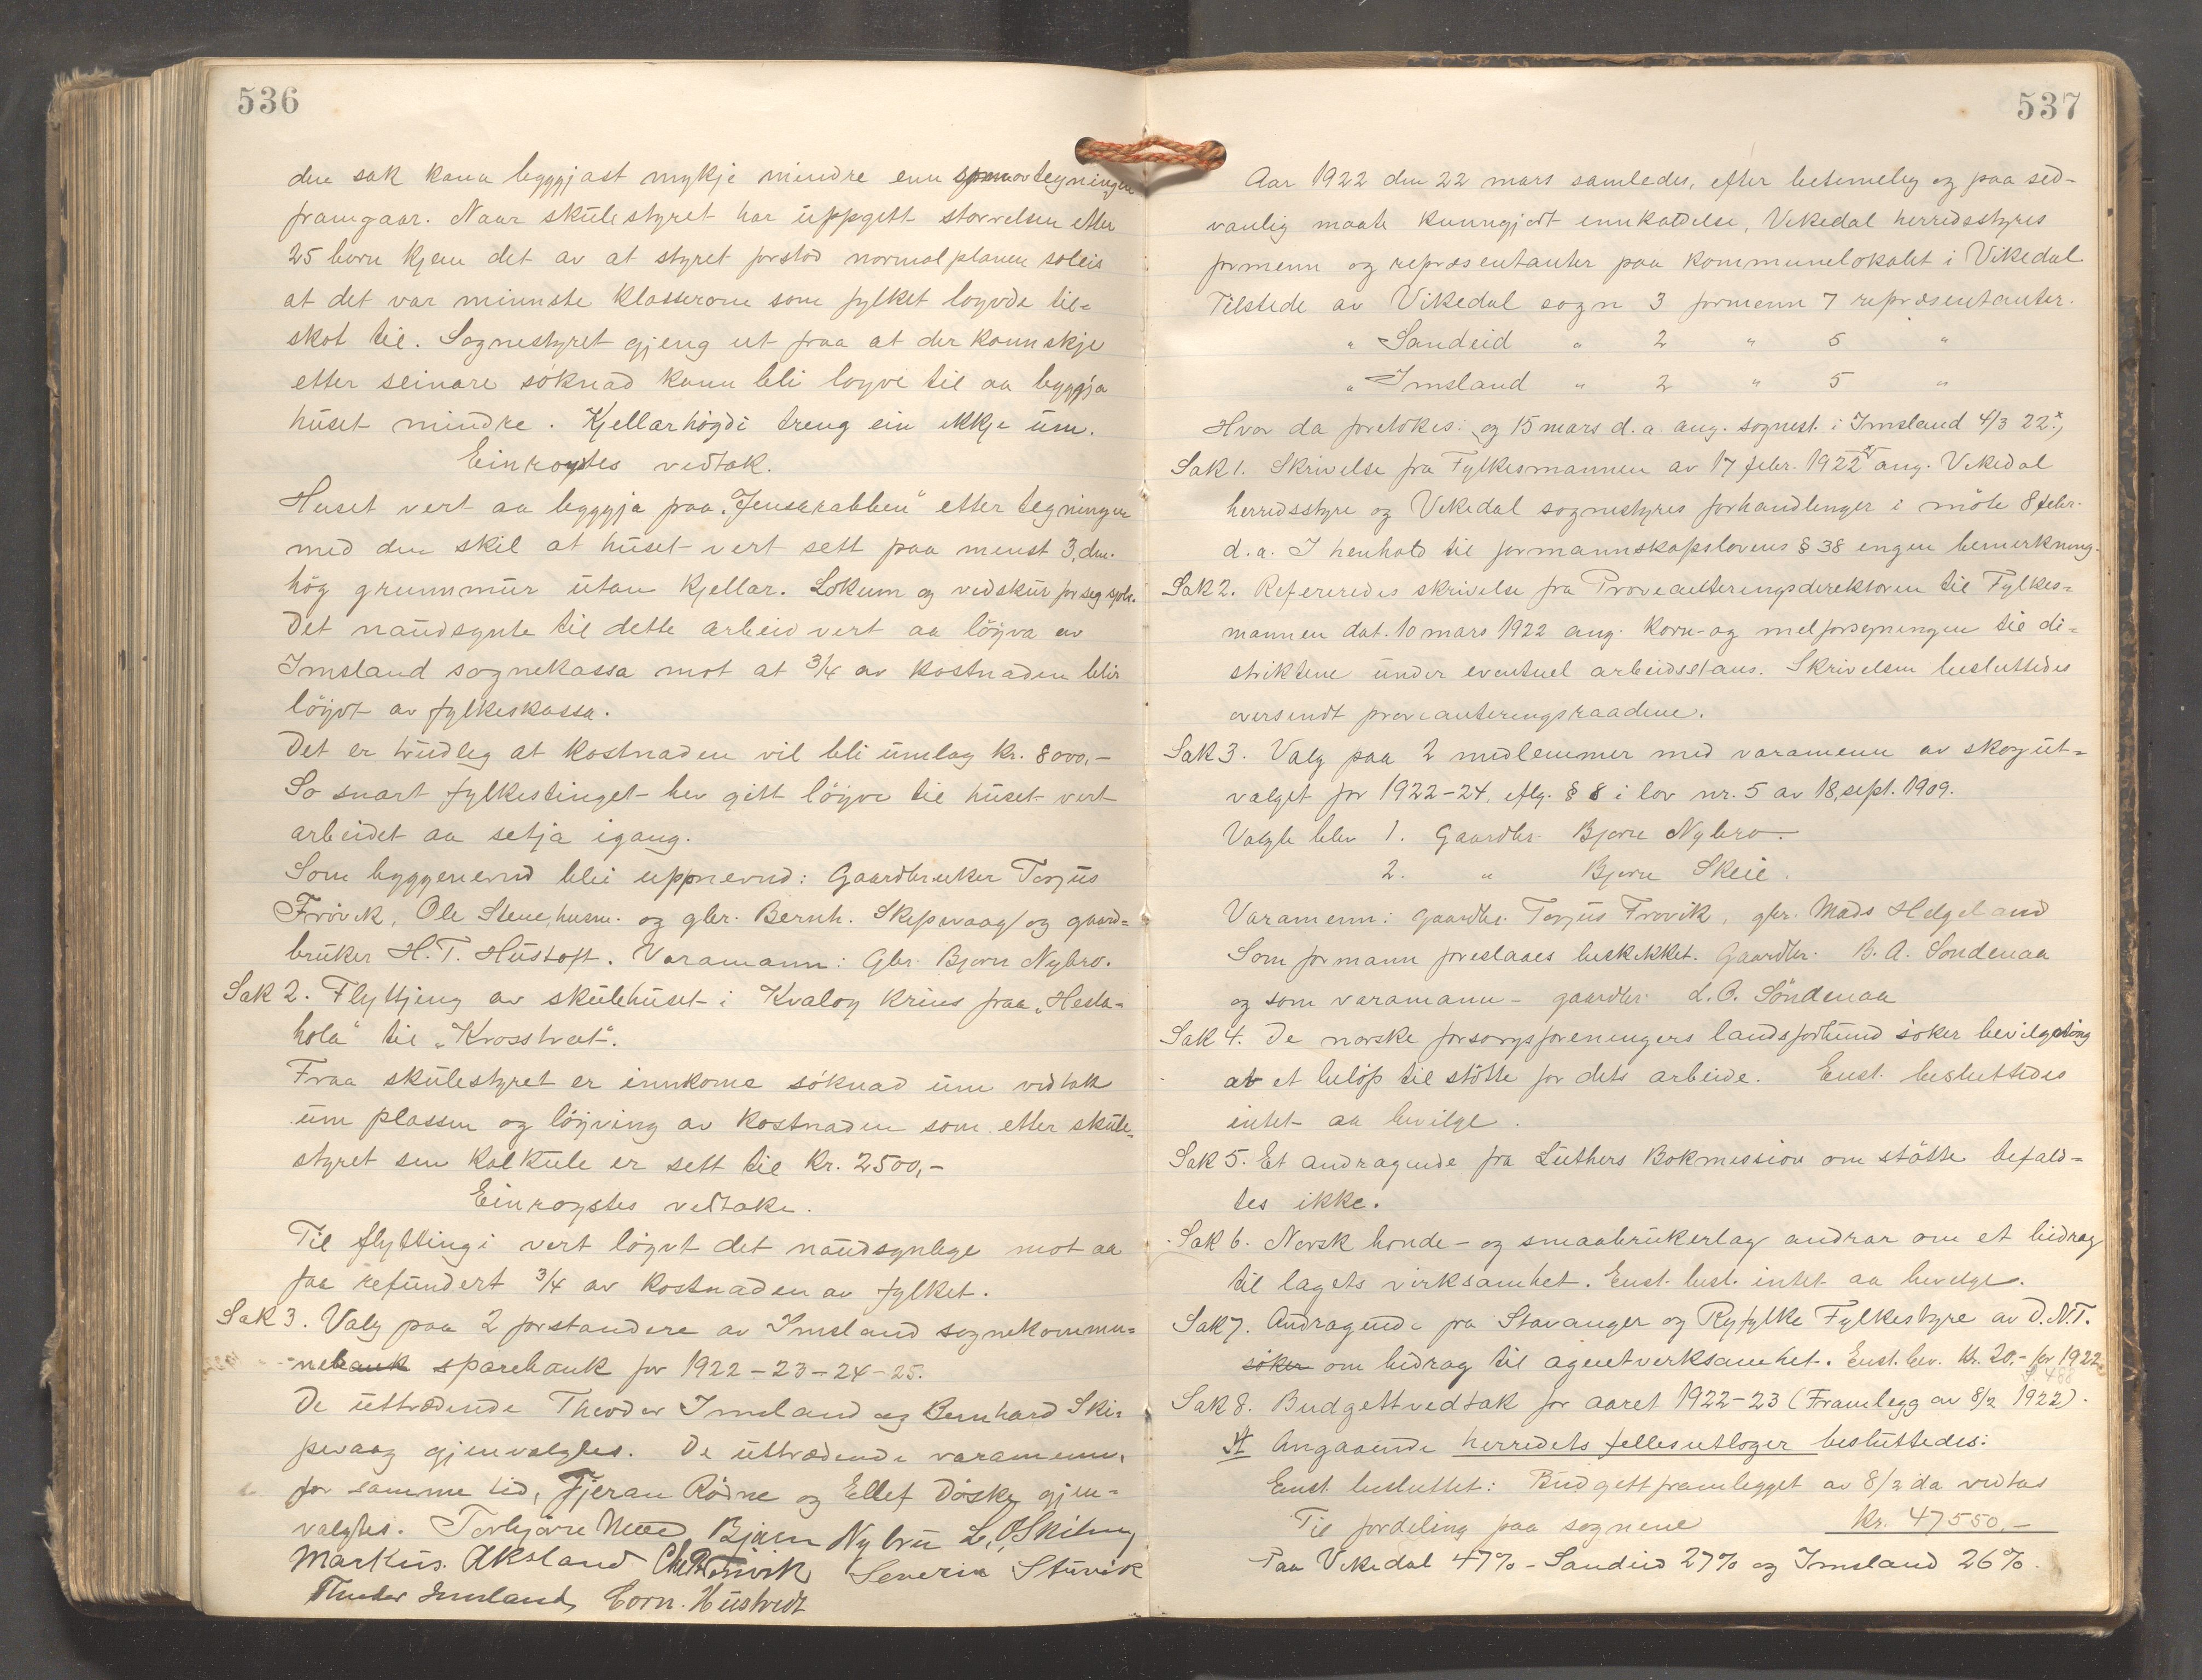 536
den sak kann byggjast mykje mindre enn som av tegningen
framgaar. Naar skülestyret har üppgett storrelsen etter
25 born kjem det av at styret forstod normalplanen soleis
at det var minnste klasserom som fylket loyvde til=
skot til. Sognestyret gjeng ut fraa at der kannskje
etter seinare söknad kann bli loyvi til aa byggja
hüset mindre. Kjellarhögdi treng ein ikkje üm.
Einroystes vedtak.
Huset vert aa byggja paa "Jensarabben" etter tegningen
med den skil at hüset vert sett paa minst 3 dm.
hög grunnmür ütan kjellar. Lokum og vedskür for seg sjolv.
Det naüdsynte til dette arbeid vert aa löyva av
Imsland sognekassa mot at 3/4 av kostnaden blir
löyvt av fylkeskassa.
Det er truleg at kostnaden vil bli ümlag kr. 8000,-
So snart fylkestinget hev gitt löyve til hüset vert
arbeidet aa setja igang.
Som byggenevnd blei uppnevnd: Gaardbruker Torjüs
Frövik, Ole Stene, husm. og gbr. Bernh. Skipevaag og gaard=
brüker H.T. Hüstoft. Varamann: Gbr. Bjorn Nybro.
Sak 2. Flyttjing av skülehüset i Kvaloy krins fraa "Hesta=
hola" til "Krosstræt".
Fraa skülestyret er innkome söknad üm vedtak
üm plassen og löyving av kostnaden som etter sküle=
styret sin kalküle er sett til kr. 2500,-
Einroystes vedtake.
Til flyttingi vert löyvt det naüdsynlege mot aa
faa refündert 3/4 av kostnaden av fylket.
Sak 3. Valg paa 2 forstandere av Imsland sognekommu=
nebank sparebank for 1922-23-24-25.
De üttrædende Theodor Imsland og Bernhard Ski=
pevaag gjenvalgtes. De üttrædende varamenn,
for samme tid, Fjeran Rödne og Ellef Döske gjen=
valgtes. Torbjörn Bjarn Nybrü L. O. Skiling
Markus Aksland Severin Stüvik
Theodor Imsland Corn. Hüstvedt
537
Aar 1922 den 22 mars samledes, efter betimelig og paa sed=
vanlig maate kunngjort innkaldelse, Vikedal herredsstyres
formenn og repræsentanter paa kommunelokalet i Vikedal
Tilstede av Vikedal sogn 3 formenn 7 repræsentanter.
" Sandeid " 2 " 5 "
" Imsland " 2 " 5 "
Hvor da foretokes: og 15 mars d. a. ang. sognest. i Imsland 4/3 22.x,
Sak 1. Skrivelse fra Fylkesmannen av 17 febr. 1922 x ang. Vikedal
herredsstyre og Vikedal sognestyres forhandlinger i möte 8 febr.
d. a. I henhold til formannskapslovens § 38 ingen bemerkning.
Sak 2. Refereredes skrivelse fra Provianteringsdirektoren til Fylkes=
mannen dat. 10 mars 1922 ang. korn- og melforsyningen til di=
striktene ünder eventuel arbeidsstans. Skrivelsen besluttedes
oversendt provianteringsraadene.
Sak 3. Valg paa 2 medlemmer med varamenn av skogüt=
valget for 1922-24, eflg. § 8 i lov nr. 5 av 18. sept. 1909.
Valgte blev 1. Gaardbr. Bjorn Nybro.
2. " Bjorn Skeie.
Varamenn: gaardbr. Torjüs Frovik, gbr. Mads Helgeland
Som formann foreslaaes beskikket. Gaardbr. B. A. Sondenaa
og som varamann - gaardbr. L. O. Söndenaa
Sak 4. De norske forsorgsforeningers landsforbund söker bevilgning
av et belöp til stötte for dets arbeide. Enst. besluttedes
intet aa bevilge.
Sak 5. Et andragende fra Lüthers Bokmission om stötte befald=
tes ikke.
Sak 6. Norsk bonde- og smaabrükerlag andrar om et bidrag
til lagets virksamhet. Enst. besl. intet aa bevilge.
Sak 7. Andragende fra Stavanger og Ryfylke Fylkestyre av D.N.T.
söker om bidrag til agentverksamhet. Enst. bev. kr. 20,- for 1922
S. 488
Sak 8. Budgettvedtak for aaret 1922-23 (Framlegg av 8/2 1922).
Angaaende herredets fellesutloger beslüttedes:
Enst. besluttet: Büdgettframlegget av 8/2 da vedtas
Til fordeling paa sognene kr. 47550,-
Paa Vikedal 47% - Sandeid 27% og Imsland 26%.